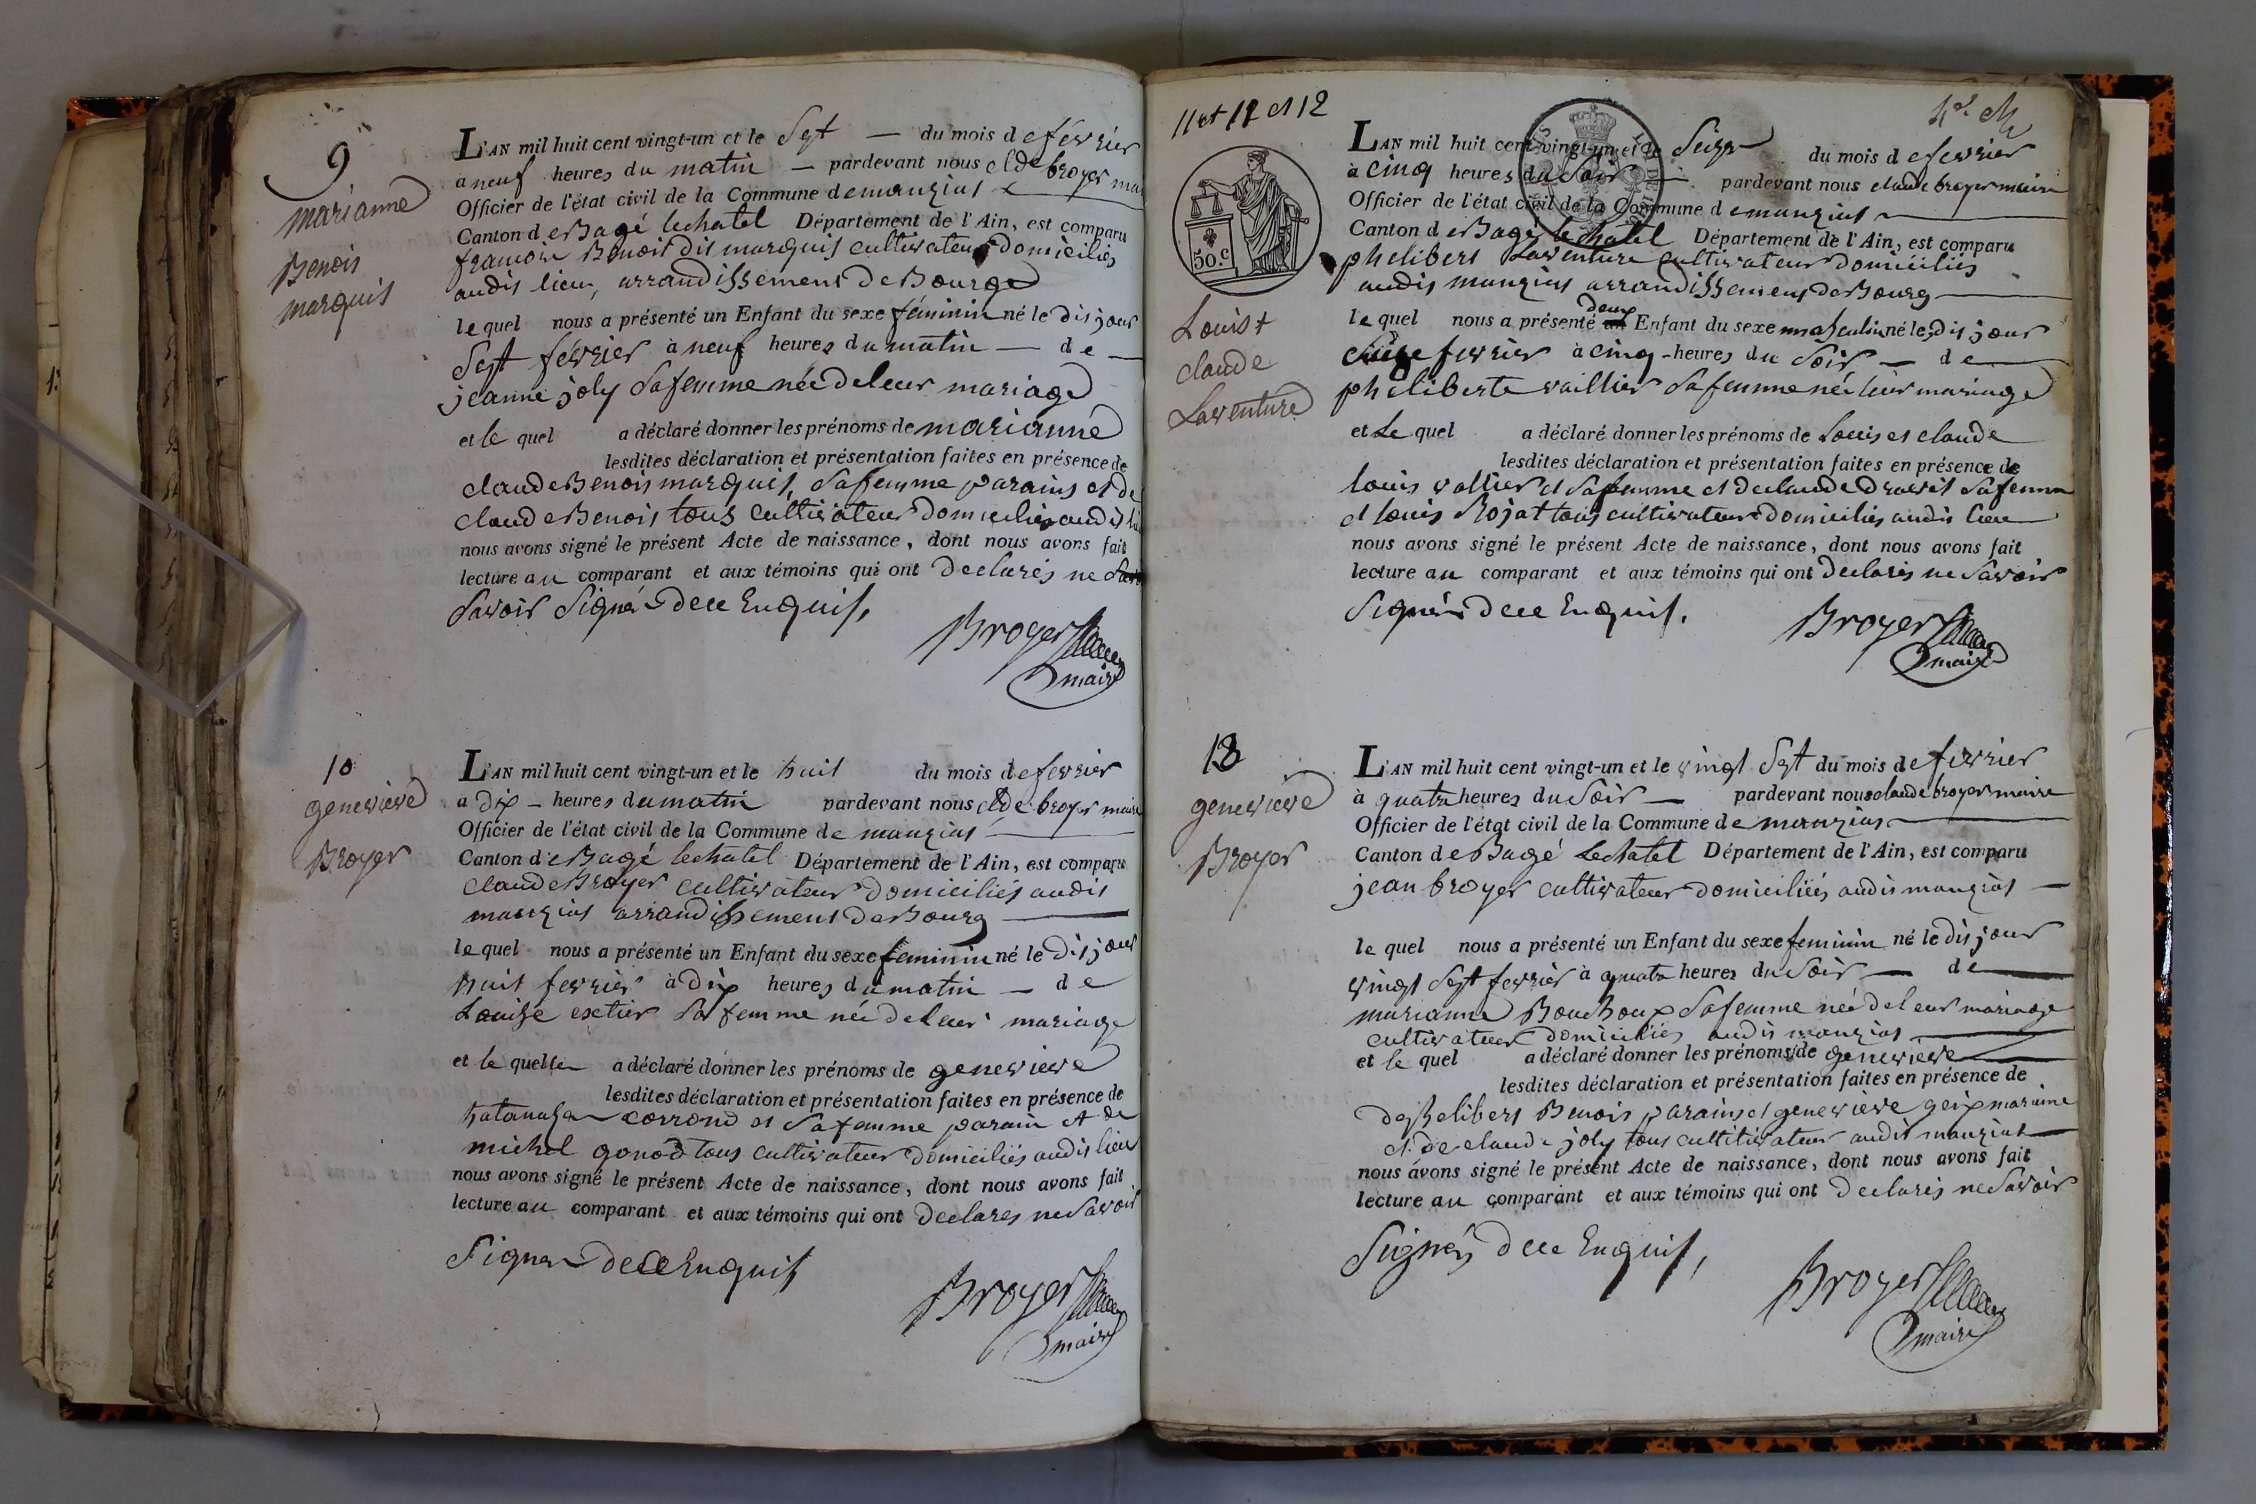 9
marianne
Benois
marquis
L'AN mil huit cent vingt-un et le Sept — du mois de fevrier
a neuf heures du matin — pardevant nous Clde broyer
Officier de l'état civil de la Commune de manziat
Canton de Bagé lechatel Département de l'Ain, est comparu
francois Benoit dit marquis cultivateur domiciliés
audis lieu, arrandissement de Bourg
le quel nous a présenté un Enfant du sexe féminin né le dis jour
Sept février à neuf heures du matin — de —
jeanne joly Sa femme née de leur mariage
et le quel a déclaré donner les prénoms de marianne
lesdites déclaration et présentation faites en présence de
claude Benois marquis, Sa femme parains et de
claude Benois tous cultivateur domiciliés audis
nous avons signé le présent Acte de naissance, dont nous avons fait
lecture au comparant et aux témoins qui ont declarés ne
Savoir Signer de ce Enquis,
Broyer
maire
10
genevieve
Broyer
L'AN mil huit cent vingt-un et le huit du mois de fevrier
a dix – heures du matin pardevant nous Clde broyer maire
Officier de l'état civil de la Commune de manziat
Canton de Bagé lechatel Département de l'Ain, est comparu
Claude Broyer cultivateur domiciliés audis
manziat arrandissement de Bourg
le quel nous a présenté un Enfant du sexe feminin né le Dis jour
huit fevrier à Dix heures du matin — de
Louise extier Sa femme née de leur mariage
et le quel a déclaré donner les prénoms de genevieve
lesdites déclaration et présentation faites en présence de
corrond et Sa femme parain et de
michel gonod tous cultivateur domiciliés audis lieu
nous avons signé le présent Acte de naissance, dont nous avons fait
lecture au comparant et aux témoins qui ont declares ne Savoir
Signer de ce Enquis
Broyer
maire
11 et 12 et 12
50.c
Louis +
claude
Laventure
L'AN mil huit cent vingt-un et le Seize du mois de fevrier
à cinq heures du Soir — pardevant nous claude broyer maire
Officier de l'état civil de la Commune de manziat
Canton de Bagé lechatel Département de l'Ain, est comparu
phelibert Laventure cultivateur domiciliés
audis manziat arrandissement de Bourg
deux
le quel nous a présenté un Enfant du sexe masculin né les dis jour
Seize fevrier à cinq – heures du Soir — de
pheliberte vaillier Sa femme née leur mariage
et Le quel a déclaré donner les prénoms de Louis et claude
lesdites déclaration et présentation faites en présence de
louis vallier et Sa femme et de claude Sa femme
et louis Rojat tous cultivateur domiciliés audis lieu
nous avons signé le présent Acte de naissance, dont nous avons fait
lecture au comparant et aux témoins qui ont declarés ne Savoir
Signer de ce Enquis.
Broyer
maire
13
genevieve
Broyer
L'AN mil huit cent vingt-un et le vingt Sept du mois de fevrier
à quatre heures du Soir — pardevant nous claude broyer maire
Officier de l'état civil de la Commune de manziat
Canton de Bagé Lechatel Département de l'Ain, est comparu
jean broyer cultivateur domiciliés audis manziat —
le quel nous a présenté un Enfant du sexe feminin né le dis jour
vingt Sept fevrier à quatre heures du Soir — de
marianne Bouchoux Sa femme née de leur mariage
cultivateur domiciliés audis manziat
et le quel a déclaré donner les prénoms de genevieve
lesdites déclaration et présentation faites en présence de
de phelibert Benois parains et genevieve maraine
et de claude joly tous cultitivateur audis manziat
nous avons signé le présent Acte de naissance, dont nous avons fait
lecture au comparant et aux témoins qui ont declarés ne Savoir
Signés de ce Enquis,
Broyer
maire